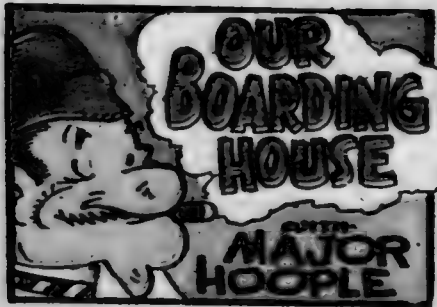 OUR
BOARDING
HOUSE
WITH
MAJOR
HOOPLE